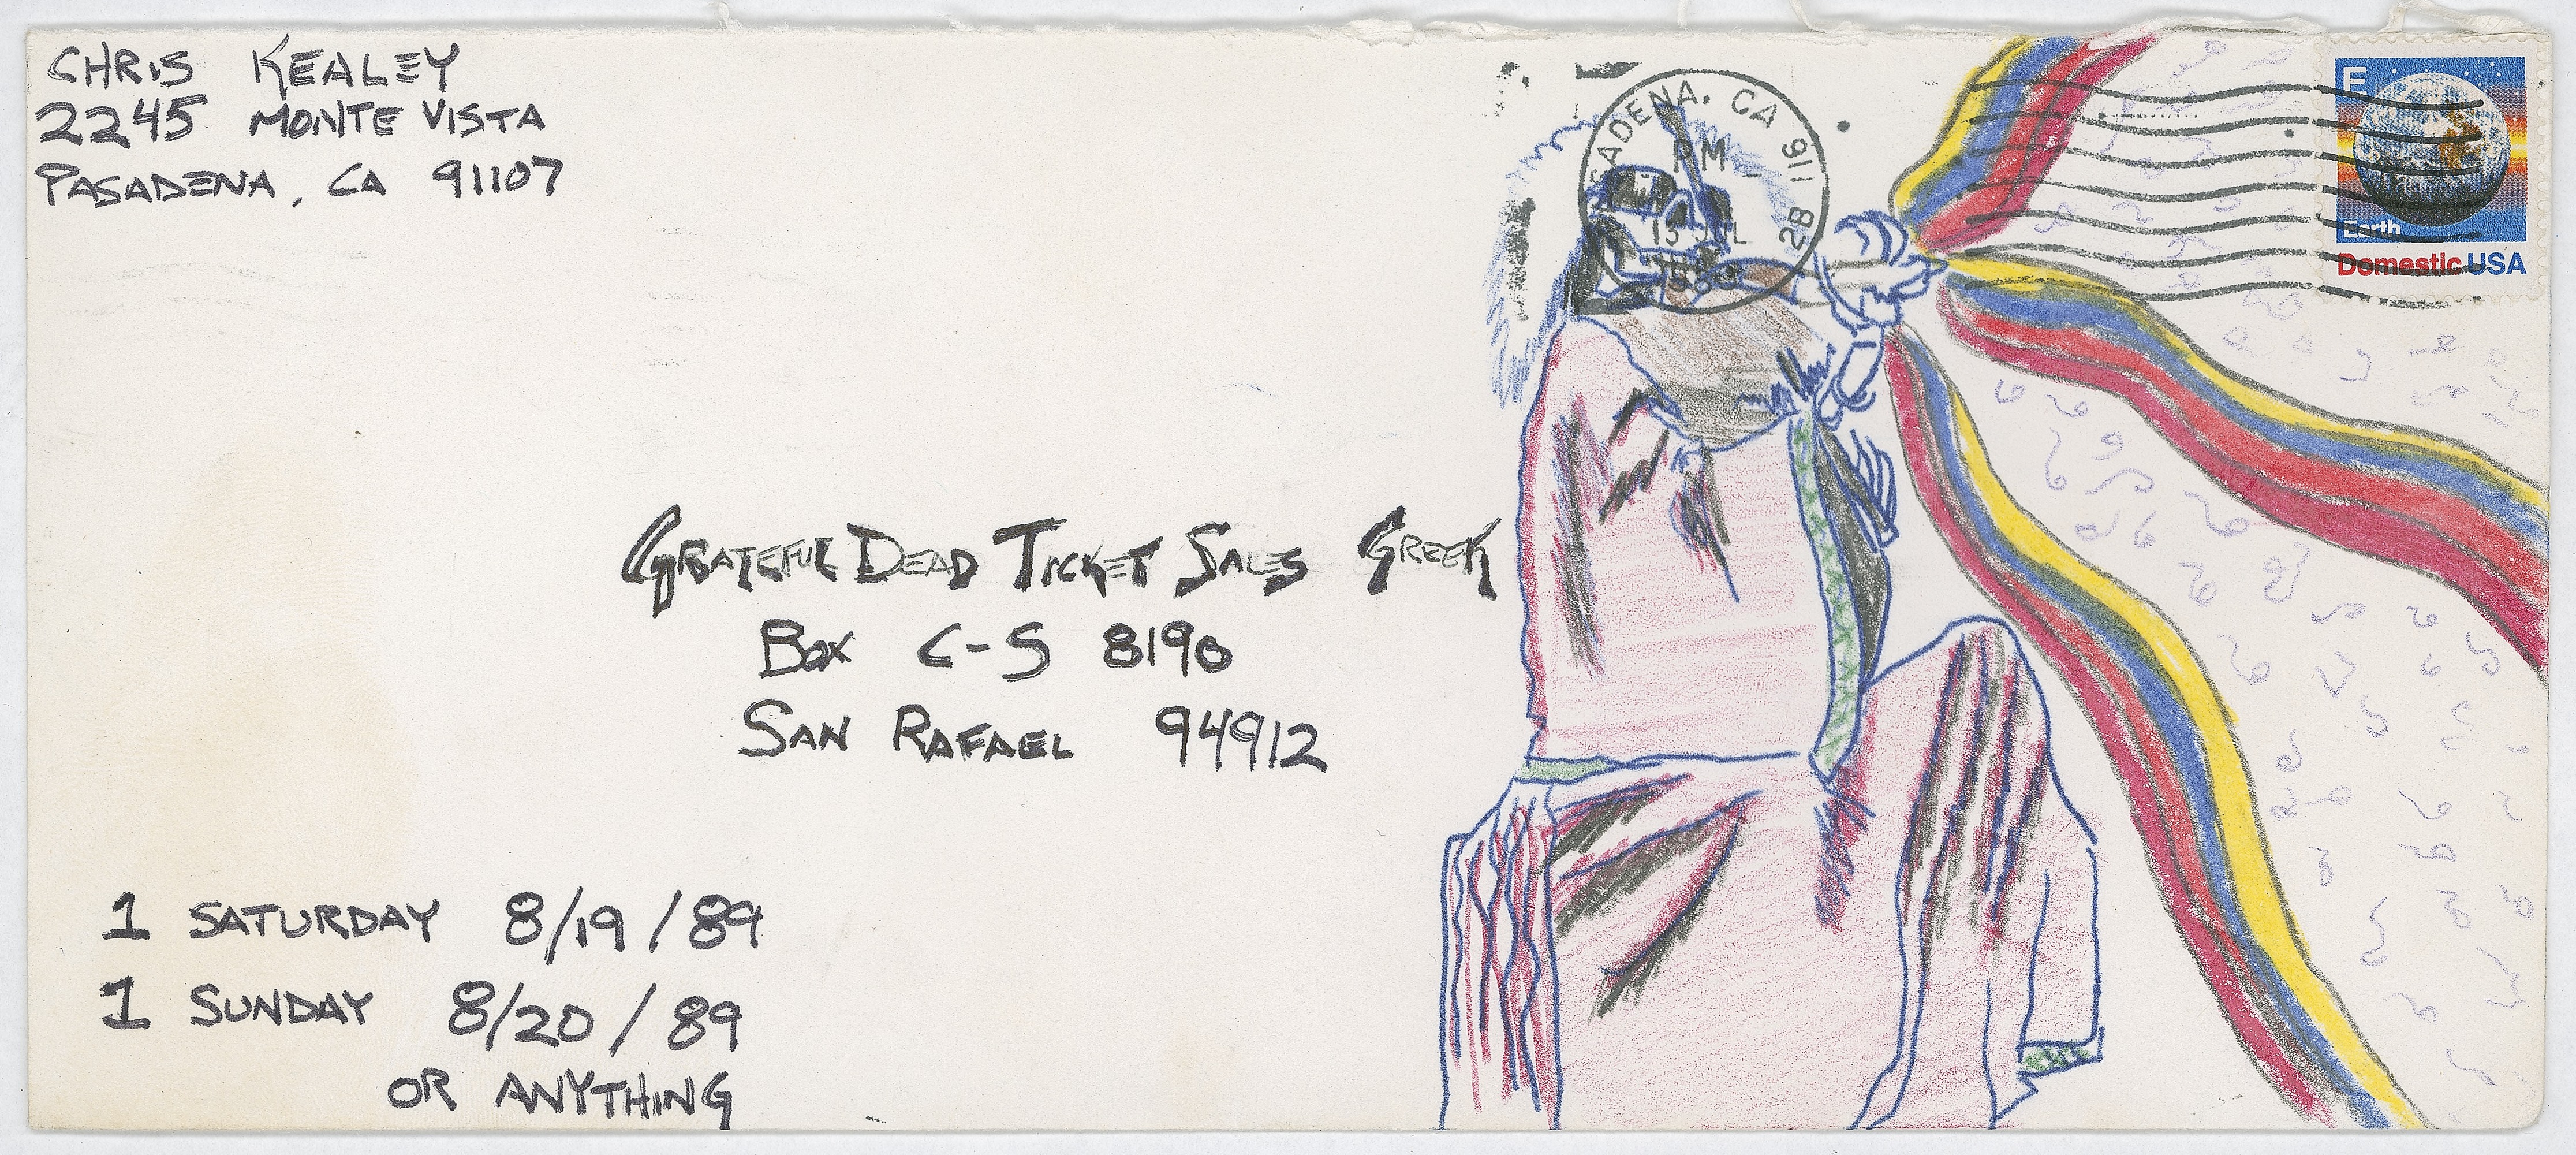 CHRIS KEALEY
2245 MONTE VISTA
PASADENA, CA 91107
PASADENA, CA 911
PM
13 JUL
28
E
Earth
Domestic USA
GRATEFUL DEAD TICKET SALES GREEK
BOX C-S 8190
SAN RAFAEL 94912
1 SATURDAY 8/19/89
1 SUNDAY 8/20/89
OR ANYTHING